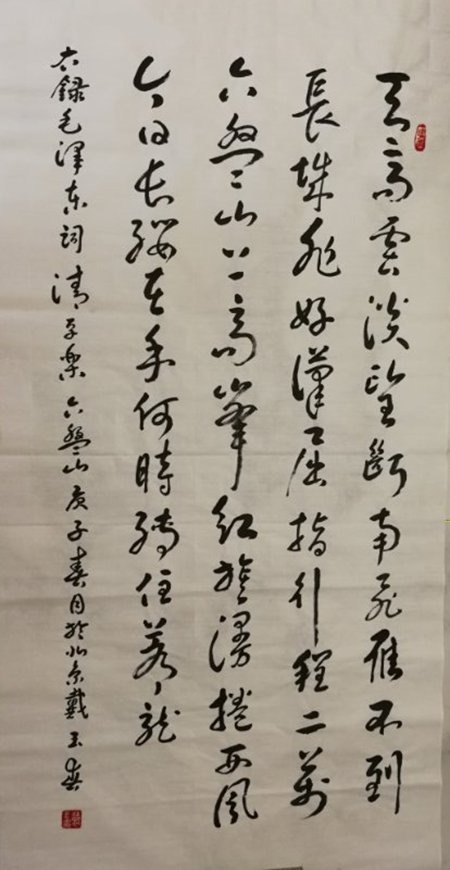 天高雲淡望斷南飛雁不到
長城非好漢屈指行程二萬
六盤山上高峯紅旗漫捲西風
今日長纓在手何時縛住蒼龍
右錄毛澤東詞清平樂六盤山庚子春月於北京戴玉春